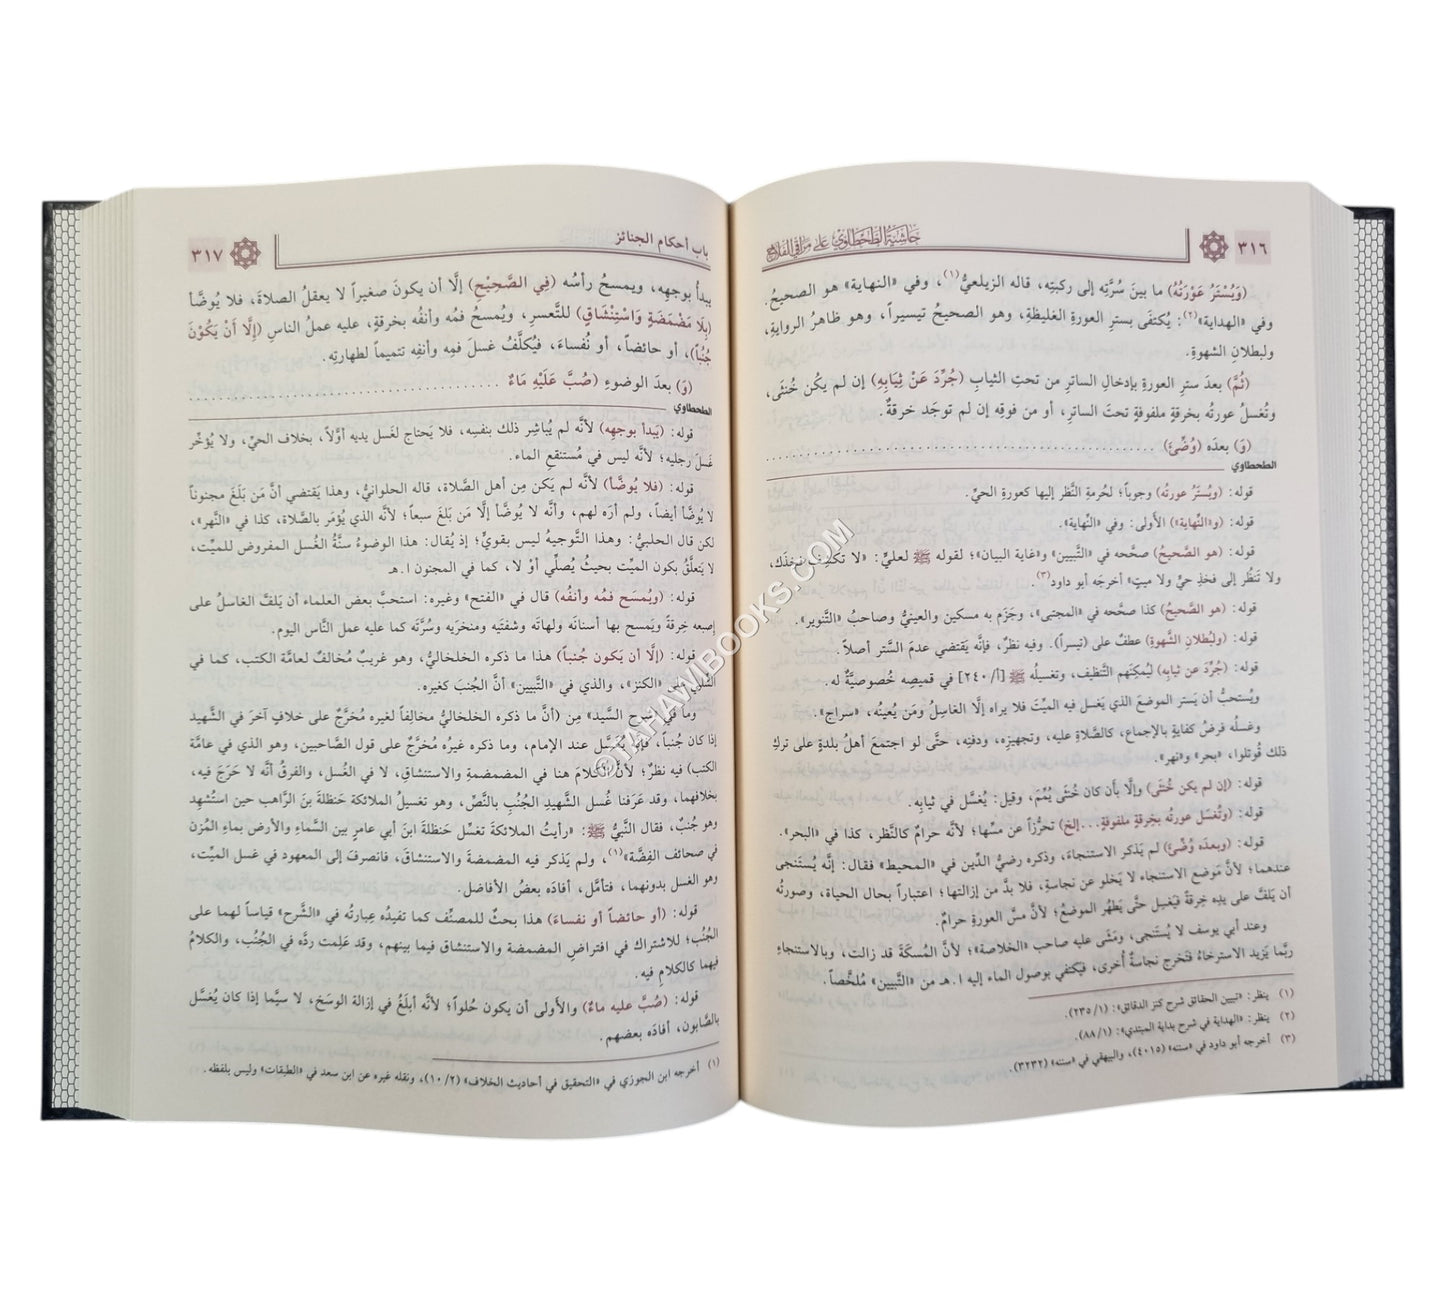 ٣١٦
حاشية الطحطاوي على مراقي الفلاح
(وَيُسْتَرُ عَوْرَتُهُ) ما بينَ سُرَّتِه إلى ركبتِه، قاله الزيلعيُّ(١)، وفي «النهاية» هو الصحيحُ.
وفي «الهداية»(٢): يُكتفَى بسترِ العورةِ الغليظةِ، وهو الصحيحُ تيسيراً، وهو ظاهرُ الروايةِ،
ولبطلانِ الشهوةِ.
(ثُمَّ) بعدَ سترِ العورةِ بإدخالِ الساترِ من تحتِ الثيابِ (جُرِّدَ عَنْ ثِيَابِهِ) إن لم يكُن خُنثَى،
وتُغسلُ عورتُه بخرقةٍ ملفوفةٍ تحتَ الساترِ، أو من فوقِه إن لم توجَد خرقةٌ.
(وَ) بعدَه (وُضِّئَ)
الطحطاوي
قوله: (ويُستَرُ عورتُه) وجوباً؛ لحُرمةِ النَّظر إليها كعورةِ الحيِّ.
قوله: (و«النِّهاية») الأَولى: وفي «النِّهاية».
قوله: (هو الصَّحيحُ) صحَّحه في «التَّبيين» و«غاية البيان»؛ لقوله ﷺ لعليٍّ: «لا تكشِف فخذَك،
ولا تَنظُر إلى فخذِ حيٍّ ولا ميتٍ» أخرجَه أبو داود(٣).
قوله: (هو الصَّحيحُ) كذا صحَّحه في «المجتبى»، وجَزَم به مسكين والعينيُّ وصاحبُ «التَّنوير».
قوله: (ولبُطلانِ الشَّهوةِ) عطفٌ على (تيسيراً). وفيه نظرٌ، فإنَّه يَقتضي عدمَ السَّتر أصلاً.
قوله: (جُرِّدَ عن ثيابِه) ليُمكِنَهم التَّنظيف، وتغسيلُه ﷺ [أ/٢٤٠] في قميصِه خُصوصيَّةٌ له.
ويُستحبُّ أن يَستر الموضعَ الذي يَغسل فيه الميِّتَ فلا يراه إلَّا الغاسِلُ ومَن يُعينُه، «سراج».
وغسلُه فرضُ كفايةٍ بالإجماع، كالصَّلاةِ عليه، وتجهيزِه، ودفنِه، حتَّى لو اجتمعَ أهلُ بلدةٍ على تركِ
ذلك قُوتِلوا، «بحر» و«نهر».
قوله: (إن لم يكن خُنثَى) وإلَّا بأن كان خُنثَى يُمِّمَ، وقيل: يُغسَّل في ثيابِه.
قوله: (وتُغسَل عورتُه بخِرقةٍ ملفوفةٍ...إلخ) تحرُّزاً عن مسِّها؛ لأنَّه حرامٌ كالنَّظر، كذا في «البحر».
قوله: (وبعدَه وُضِّئَ) لم يَذكر الاستنجاءَ، وذكره رضيُّ الدِّين في «المحيط» فقال: إنَّه يُستنجى
عندهما؛ لأنَّ مَوضع الاستنجاء لا يَخلو عن نجاسةٍ، فلا بدَّ من إزالتها؛ اعتباراً بحال الحياة، وصورتُه
أن يَلفَّ على يدِه خِرقةً فيَغسِل حتَّى يَطهُر الموضعُ؛ لأنَّ مسَّ العورةِ حرامٌ.
وعند أبي يوسف لا يُستَنجى، ومَشَى عليه صاحب «الخلاصة»؛ لأنَّ المُسكَةَ قد زالت، وبالاستنجاءِ
ربَّما يَزيد الاسترخاءُ فتَخرج نجاسةٌ أُخرى، فيَكتفي بوصول الماء إليه ا.هـ من «التَّبيين» مُلخَّصاً.
(١) ينظر: «تبيين الحقائق شرح كنز الدقائق»: (١/ ٢٣٥).
(٢) ينظر: «الهداية في شرح بداية المبتدي»: (١/ ٨٨).
(٣) أخرجه أبو داود في «سننه» (٤٠١٥)، والبيهقي في «سننه» (٣٢٣٢).
باب أحكام الجنائز
٣١٧
يبدأُ بوجهِه، ويمسحُ رأسُه (فِي الصَّحِيْحِ) إلَّا أن يكونَ صغيراً لا يعقلُ الصلاةَ، فلا يُوضَّأُ
(بِلَا مَضْمَضَةٍ وَاسْتِنْشَاقٍ) للتَّعسرِ، ويُمسحُ فمُه وأنفُه بخرقةٍ، عليه عملُ الناسِ (إِلَّا أَنْ يَكُوْنَ
جُنُباً)، أو حائضاً، أو نُفساءَ، فيُكلَّفُ غسلَ فمِه وأنفِه تتميماً لطهارتِه.
(وَ) بعدَ الوضوءِ (صُبَّ عَلَيْهِ مَاءٌ
الطحطاوي
قوله: (يَبدأ بوجهِه) لأنَّه لم يُباشِر ذلك بنفسِه، فلا يَحتاج لغَسل يديه أوَّلاً، بخلاف الحيِّ، ولا يُؤخَّر
غَسلَ رجليه؛ لأنَّه ليس في مُستنقعِ الماء.
قوله: (فلا يُوضَّأ) لأنَّه لم يَكن مِن أهل الصَّلاة، قاله الحلوانيُّ، وهذا يَقتضي أنَّ مَن بَلَغَ مجنوناً
لا يُوضَّأ أيضاً، ولم أرَه لهم، وأنَّه لا يُوضَّأ إلَّا مَن بَلغَ سبعاً؛ لأنَّه الذي يُؤمَر بالصَّلاة، كذا في «النَّهر»،
لكن قال الحلبيُّ: وهذا التَّوجيهُ ليس بقويٍّ؛ إذ يُقال: هذا الوضوءُ سنَّةُ الغُسل المفروض للميِّت،
لا يَتعلَّقُ بكون الميِّت بحيثُ يُصلِّي أوْ لا، كما في المجنون ا.هـ
قوله: (ويُمسَح فمُه وأنفُه) قال في «الفتح» وغيره: استحبَّ بعض العلماء أن يَلفَّ الغاسلُ على
إصبعه خِرقةً ويَمسح بها أسنانَه ولهاتَه وشفتَيه ومنخرَيه وسُرَّتَه كما عليه عمل النَّاس اليوم.
قوله: (إلَّا أن يَكون جُنباً) هذا ما ذكره الخلخاليُّ، وهو غريبٌ مُخالفٌ لعامَّة الكتب، كما في
الشلبي على «الكنز»، والذي في «التَّبيين» أنَّ الجُنبَ كغيره.
وما في «شرح السَّيد» مِن (أنَّ ما ذكره الخلخاليُّ مخالِفاً لغيره مُخرَّجٌ على خلافٍ آخرَ في الشَّهيد
إذا كان جُنباً، فإنَّه يُغسَّل عند الإمام، وما ذكره غيرُه مُخرَّجٌ على قول الصَّاحبين، وهو الذي في عامَّة
الكتب) فيه نظرٌ؛ لأنَّ الكلامَ هنا في المضمضةِ والاستنشاق، لا في الغُسل، والفرقُ أنَّه لا حَرَجَ فيه،
بخلافهما، وقد عَرَفنا غُسل الشَّهيدِ الجُنُبِ بالنَّصِّ، وهو تغسيلُ الملائكة حَنظلةَ بنَ الرَّاهب حين استُشهد
وهو جُنبٌ، فقال النَّبيُّ ﷺ: «رأيتُ الملائكةَ تغسِّل حَنظلةَ ابنَ أبي عامرٍ بين السَّماءِ والأرض بماءِ المُزن
في صحائف الفِضَّة»(١)، ولم يَذكر فيه المضمضةَ والاستنشاقَ، فانصرفَ إلى المعهود في غسل الميِّت،
وهو الغسل بدونهما، فتأمَّل، أفادَه بعضُ الأفاضل.
قوله: (أو حائضاً أو نفساءَ) هذا بحثٌ للمصنِّف كما تفيدُه عِبارتُه في «الشَّرح» قياساً لهما على
الجُنُب؛ للاشتراك في افتراض المضمضة والاستنشاق فيما بينهم، وقد عَلِمت ردَّه في الجُنُب، والكلامُ
فيهما كالكلامِ فيه.
قوله: (صُبَّ عليه ماءٌ) والأَولى أن يكون حُلواً؛ لأنَّه أبلَغُ في إزالة الوسَخ، لا سيَّما إذا كان يُغسَّل
بالصَّابون، أفادَه بعضهم.
(١) أخرجه ابن الجوزي في «التحقيق في أحاديث الخلاف» (٢/ ١٠)، ونقله غيره عن ابن سعد في «الطبقات» وليس بلفظه.
©TAHAWIBOOKS.COM